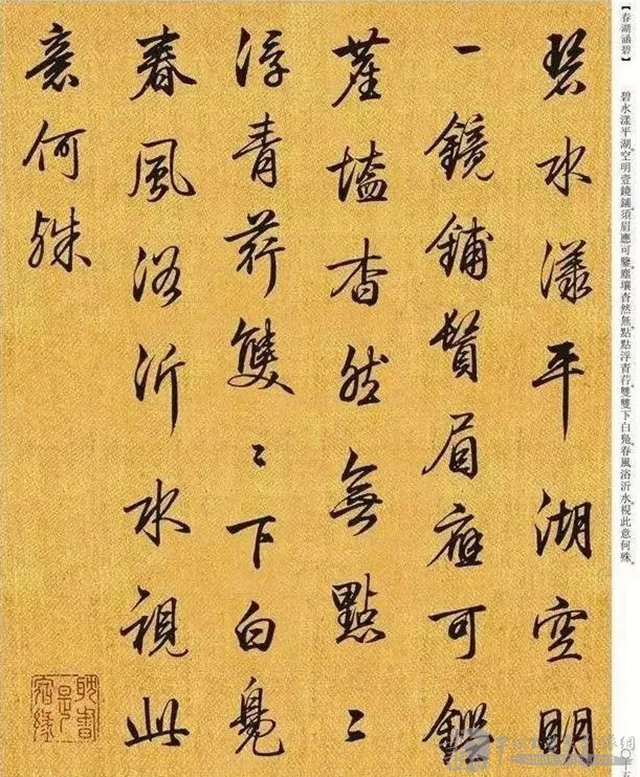 【春湖涵碧】
碧水漾平湖。空明壹鏡鋪。須眉應可鑒。塵壤杳然無。點點浮青荇。雙雙下白鳧。春風浴沂水。視此意何殊。
碧水漾平湖空明
一鏡鋪鬚眉應可鑑
塵壒杳然無點〻
浮青荇雙〻下白鳧
春風浴沂水視此
意何殊
耽書是宿緣